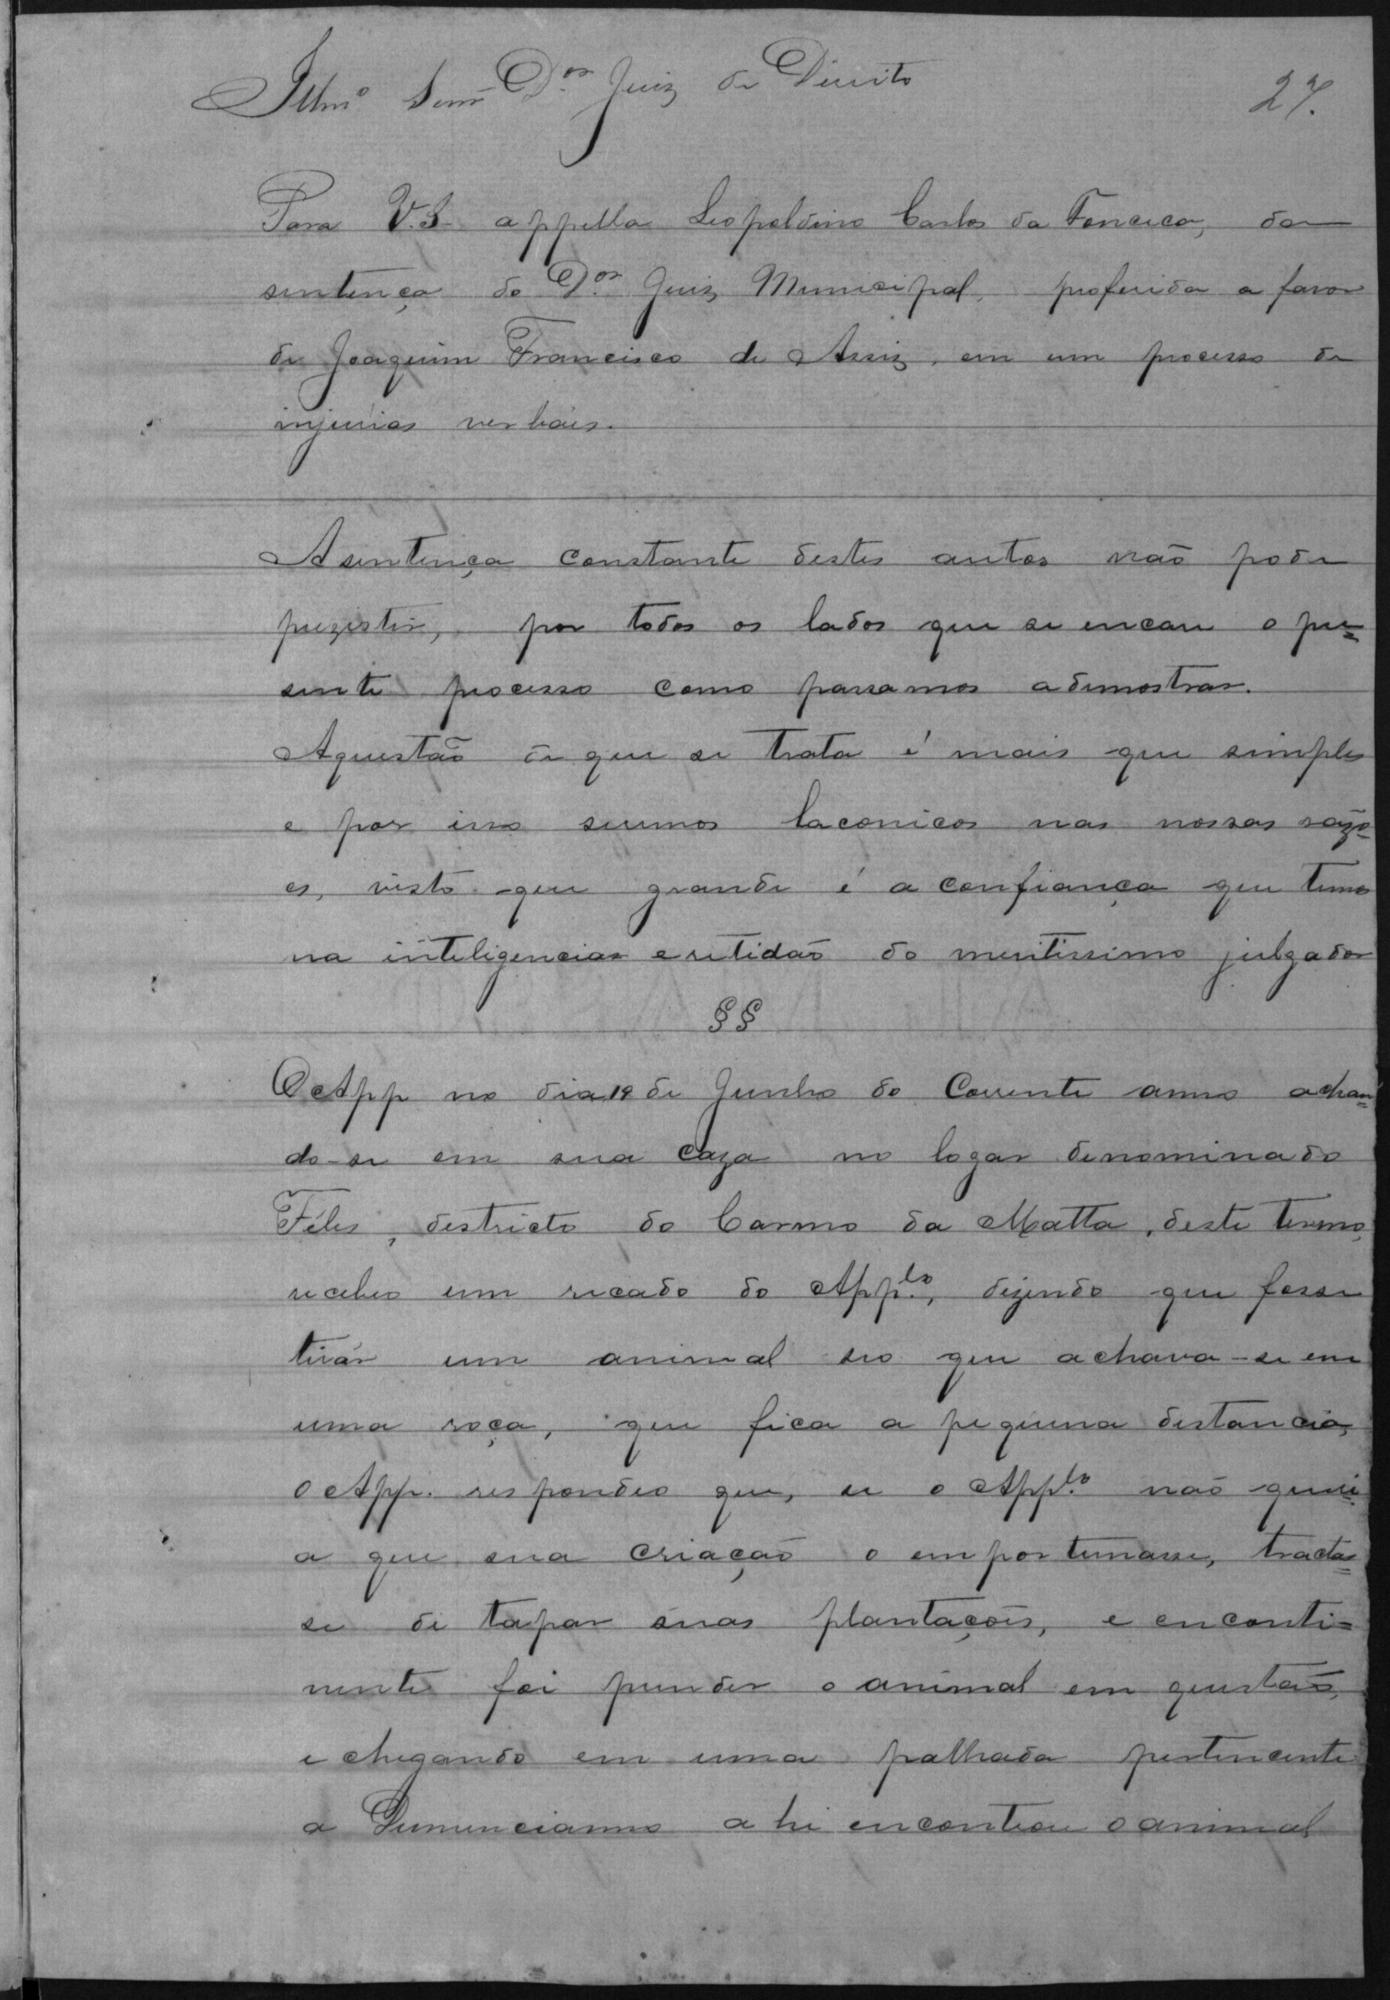 Illmº Senr Dor. Juiz de Direito
27.
Para V.S. appella Leopoldino Carlos da Fonceca, da
sentença do Dor. Juiz Municipal, proferida a favor
de Joaquim Francisco de Assiz, em um processo de
injurias verbais.
A sentença constante destes autos não pode
prezistir, por todos os lados que se encare o pre=
sente processo como passamos a demostrar.
A questão de que se trata é mais que simples
e por isso seremos laconicos nas nossas razo=
es, visto que grande é a confiança que temos
na inteligencias e retidão do meritissimo julgador
§§
O App no dia 19 de Junho do Corrente anno achan=
do-se em sua caza no logar denominado
Félis, destricto do Carmo da Matta, deste termo,
recebeo um recado do Appldo., dizendo que fosse
tirár um animal seo que achava-se em
uma roça, que fica a pequena distancia,
o App. respondeo que, se o Appldo. não queri=
a que sua criação o emportunasse, tractas=
se de tapar suas plantaçoẽs, e enconti=
nente foi prender o animal em questão,
e chegando em uma palhada pertencente
a Denuncianno ahi encontrou o animal